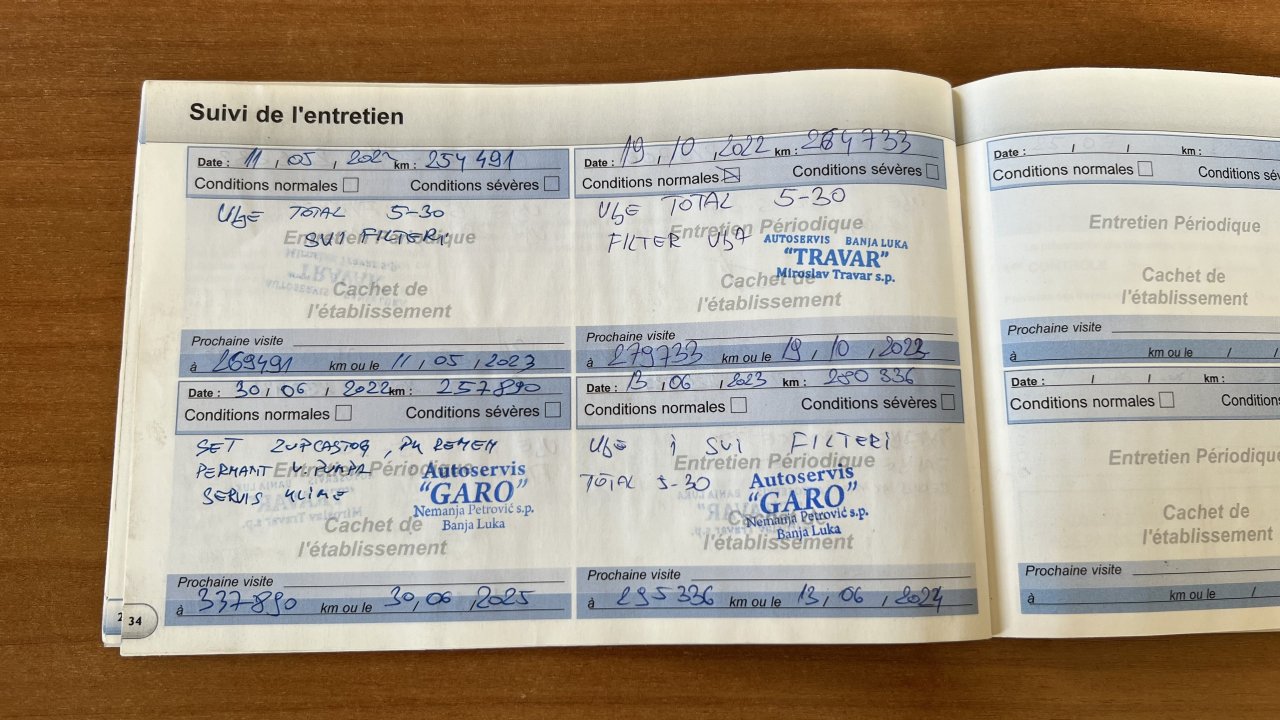 Suivi de l'entretien
Date : 11 , 05 , 2022 km : 254 491
Conditions normales Conditions sévères
Ulje TOTAL 5-30
SVI FILTERI
Entretien Périodique
Cachet de
l'établissement
Prochaine visite
à 269491 km ou le 11 , 05 , 2023
Date : 19 , 10 , 2022 km : 264 733
Conditions normales Conditions sévères
Ulje TOTAL 5-30
Entretien Périodique
FILTER ULJA
AUTOSERVIS BANJA LUKA
"TRAVAR"
Miroslav Travar s.p.
Cachet de
l'établissement
Prochaine visite
à 279733 km ou le 19 , 10 , 2023
Date : 30, 06 , 2022 km : 257890
Conditions normales Conditions sévères
SET ZUPCASTOG , PK REMEN
V. PUMPA
SERVIS KLIME
Entretien Périodique
Autoservis
"GARO"
Nemanja Petrović s.p.
Banja Luka
Cachet de
l'établissement
Prochaine visite
à 337890 km ou le 30, 06 , 2025
Date : 13 , 06 , 2023 km : 280 336
Conditions normales Conditions sévères
Ulje i SVI FILTERI
Entretien Périodique
TOTAL 5-30
Autoservis
"GARO"
Nemanja Petrović s.p.
Banja Luka
Cachet de
l'établissement
Prochaine visite
à 295336 km ou le 13, 06 , 2024
34
Date : / / km :
Conditions normales
Entretien Périodique
Cachet de
l'établissement
Prochaine visite
à km ou le / /
Date : / / km :
Conditions normales
Entretien Périodique
Cachet de
l'établissement
Prochaine visite
à km ou le /